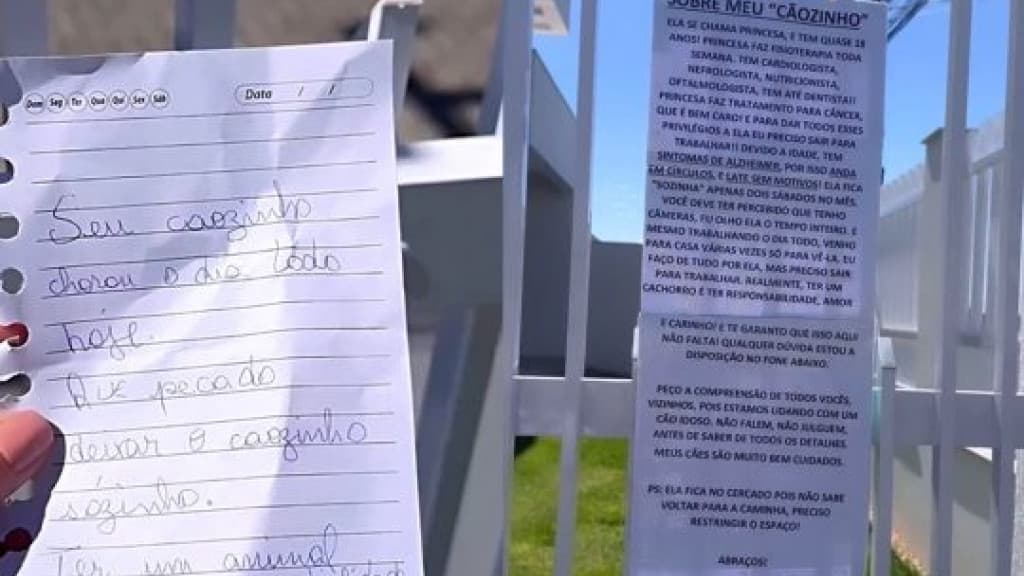 Dom Seg Ter Qua Qui Sex Sáb
Data / /
Seu cãozinho
chorou o dia todo
hoje.
Que pecado
deixar o cãozinho
sózinho.
Ter um animal
SOBRE MEU "CÃOZINHO"
ELA SE CHAMA PRINCESA, E TEM QUASE 18
ANOS! PRINCESA FAZ FISIOTERAPIA TODA
SEMANA. TEM CARDIOLOGISTA,
NEFROLOGISTA, NUTRICIONISTA,
OFTALMOLOGISTA, TEM ATÉ DENTISTA!!
PRINCESA FAZ TRATAMENTO PARA CÂNCER,
QUE É BEM CARO! E PARA DAR TODOS ESSES
PRIVILÉGIOS A ELA EU PRECISO SAIR PARA
TRABALHAR!! DEVIDO A IDADE, TEM
SINTOMAS DE ALZHEIMER, POR ISSO ANDA
EM CIRCULOS, E LATE SEM MOTIVOS! ELA FICA
"SOZINHA" APENAS DOIS SÁBADOS NO MÊS.
VOCÊ DEVE TER PERCEBIDO QUE TENHO
CÂMERAS, EU OLHO ELA O TEMPO INTEIRO. E
MESMO TRABALHANDO O DIA TODO, VENHO
PARA CASA VÁRIAS VEZES SÓ PARA VÊ-LA. EU
FAÇO DE TUDO POR ELA, MAS PRECISO SAIR
PARA TRABALHAR. REALMENTE, TER UM
CACHORRO É TER RESPONSABILIDADE, AMOR
E CARINHO! E TE GARANTO QUE ISSO AQUI
NÃO FALTA! QUALQUER DÚVIDA ESTOU A
DISPOSIÇÃO NO FONE ABAIXO.
PEÇO A COMPREENSÃO DE TODOS VOCÊS,
VIZINHOS, POIS ESTAMOS LIDANDO COM UM
CÃO IDOSO. NÃO FALEM, NÃO JULGUEM,
ANTES DE SABER DE TODOS OS DETALHES.
MEUS CÃES SÃO MUITO BEM CUIDADOS.
PS: ELA FICA NO CERCADO POIS NÃO SABE
VOLTAR PARA A CAMINHA, PRECISO
RESTRINGIR O ESPAÇO!
ABRAÇOS!